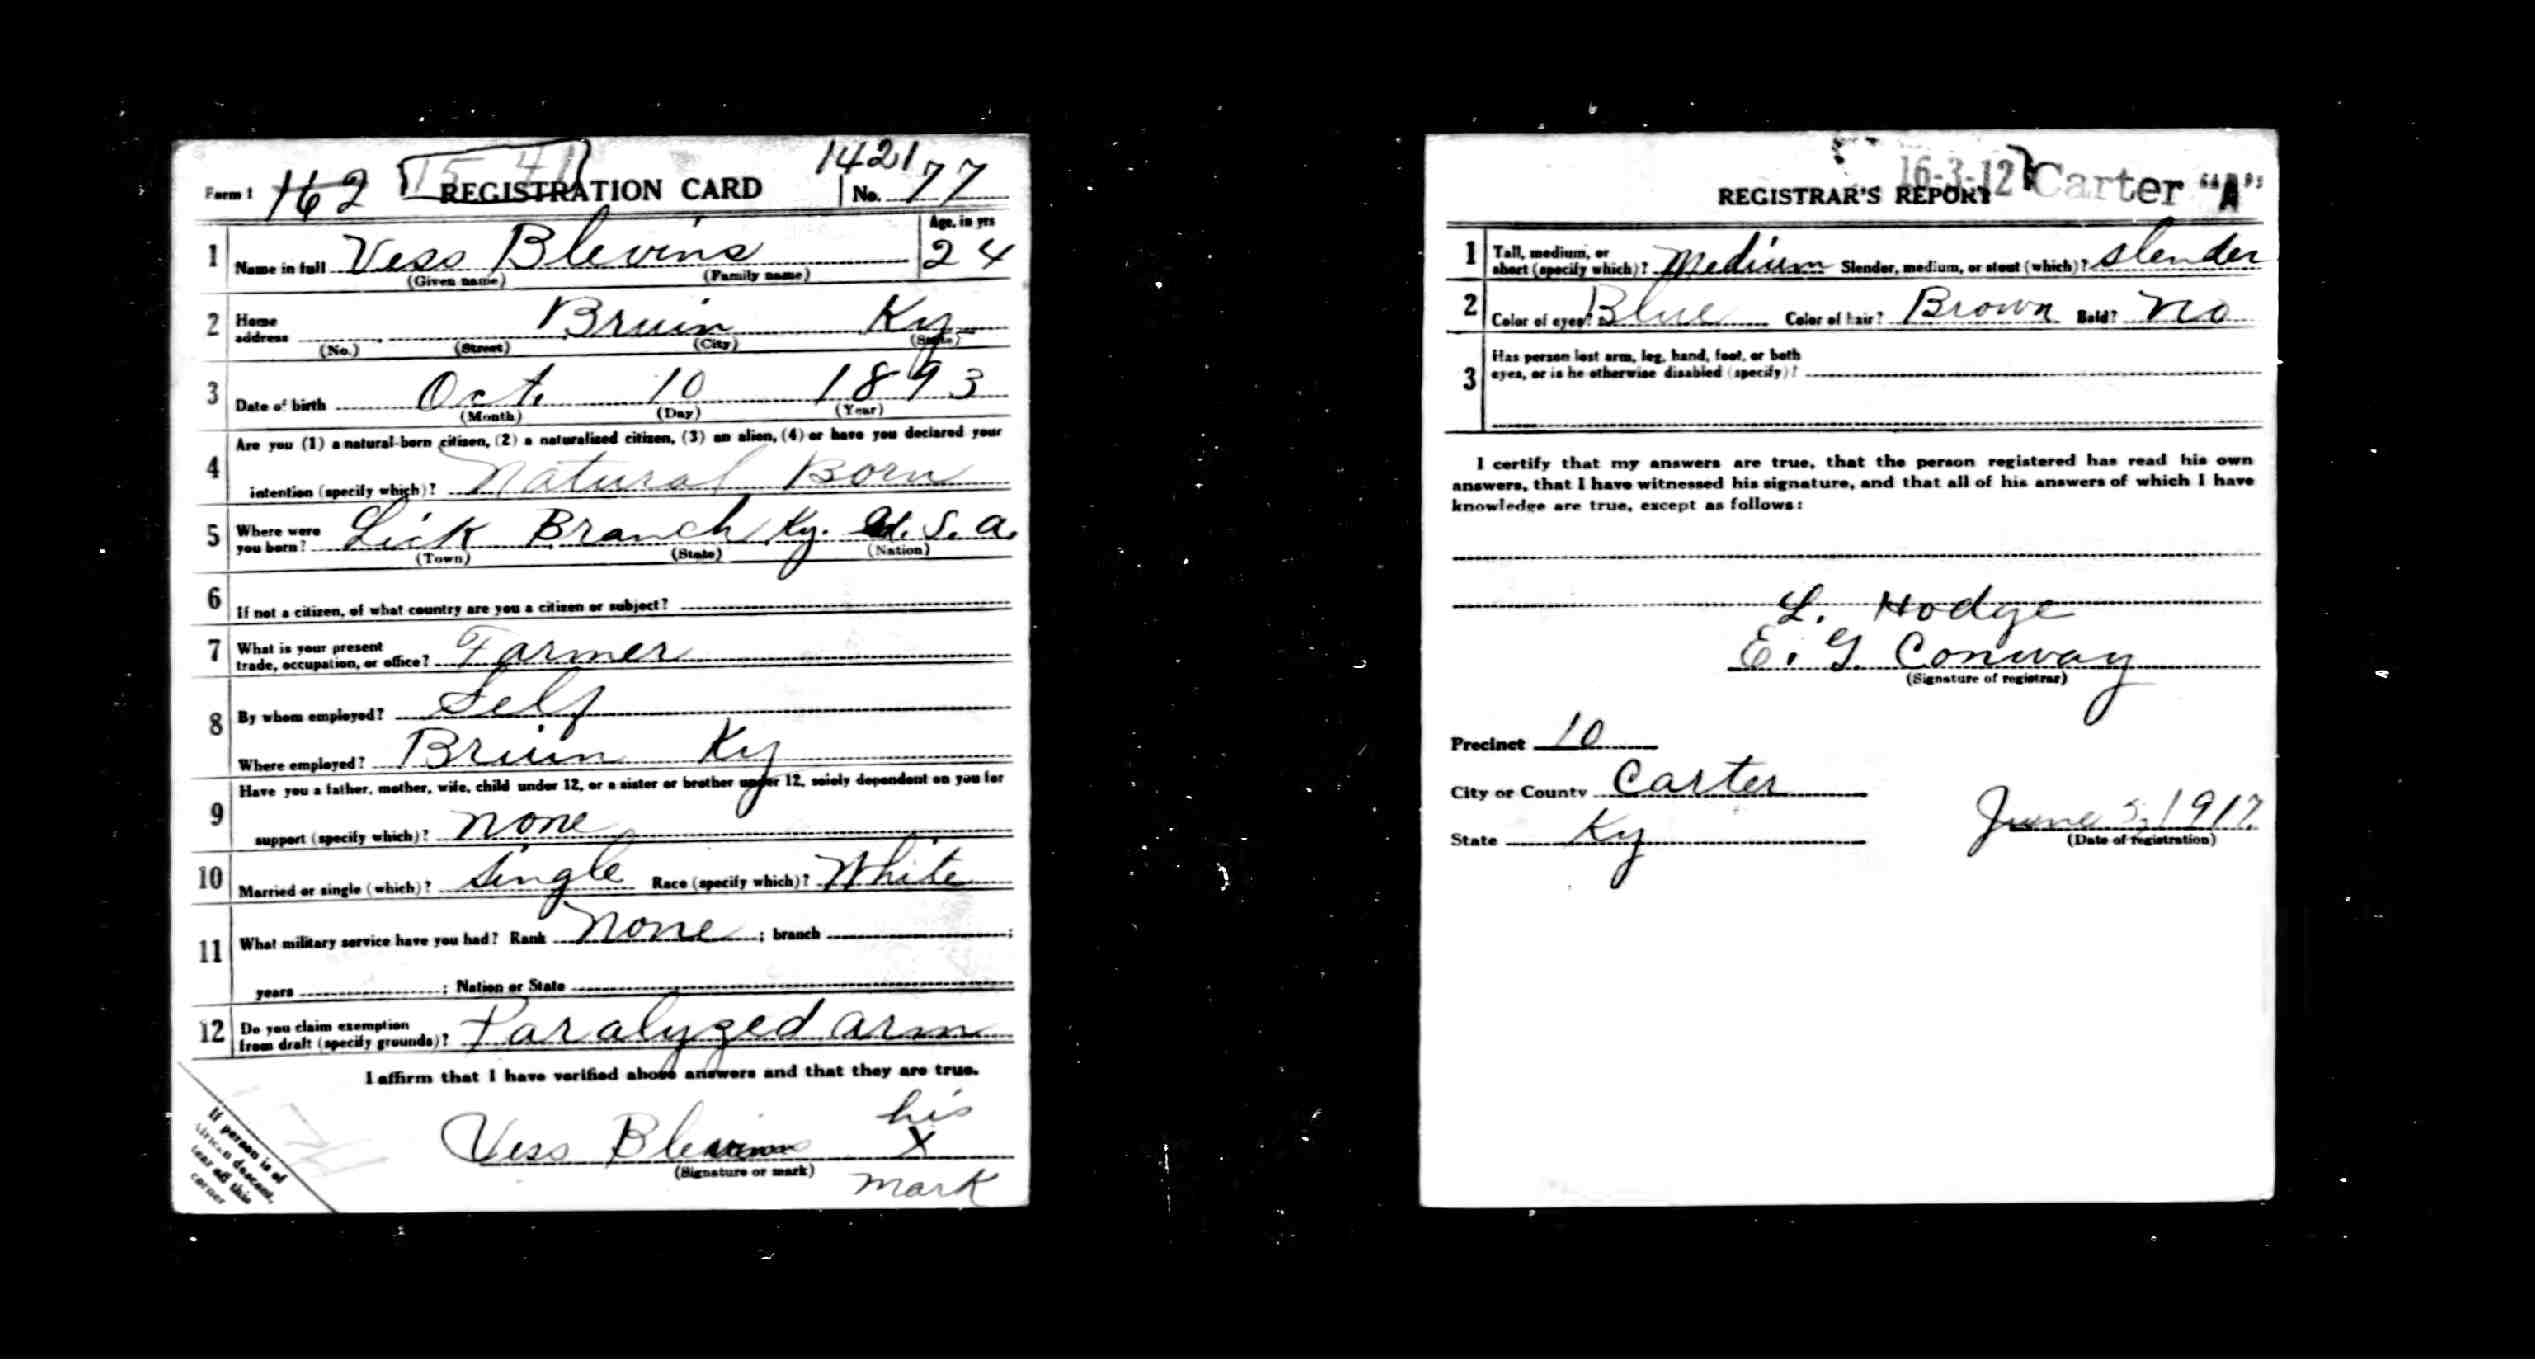 1421
Form 1 162 REGISTRATION CARD No. 77
Age, in yrs
1 Name in full Vess Blevins 24
(Given name) (Family name)
2 Home address Bruin Ky
(No.) (Street) (City) (State)
3 Date of birth Oct. 10 1893
(Month) (Day) (Year)
4 Are you (1) a natural-born citizen, (2) a naturalized citizen, (3) an alien, (4) or have you declared your
intention (specify which)? Natural Born
5 Where were you born? Lick Branch Ky. U. S. A.
(Town) (State) (Nation)
6 If not a citizen, of what country are you a citizen or subject?
7 What is your present
trade, occupation, or office? Farmer
8 By whom employed? Self
Where employed? Bruin Ky
9 Have you a father, mother, wife, child under 12, or a sister or brother under 12, solely dependent on you for
support (specify which)? none
10 Married or single (which)? Single Race (specify which)? White
11 What military service have you had? Rank none ; branch ;
years ; Nation or State
12 Do you claim exemption
from draft (specify grounds)? Paralyzed arm
I affirm that I have verified above answers and that they are true.
his
Vess Blevins X
(Signature or mark)
mark
If person is of
African descent,
tear off this
corner
16-3-12 Carter "A"
REGISTRAR'S REPORT
1 Tall, medium, or
short (specify which)? Medium Slender, medium, or stout (which)? Slender
2 Color of eyes? Blue Color of hair? Brown Bald? No
3 Has person lost arm, leg, hand, foot, or both
eyes, or is he otherwise disabled (specify)?
I certify that my answers are true, that the person registered has read his own
answers, that I have witnessed his signature, and that all of his answers of which I have
knowledge are true, except as follows:
L. Hodge
E. G Conway
(Signature of registrar)
Precinct 10
City or County Carter
State Ky June 5, 1917
(Date of registration)